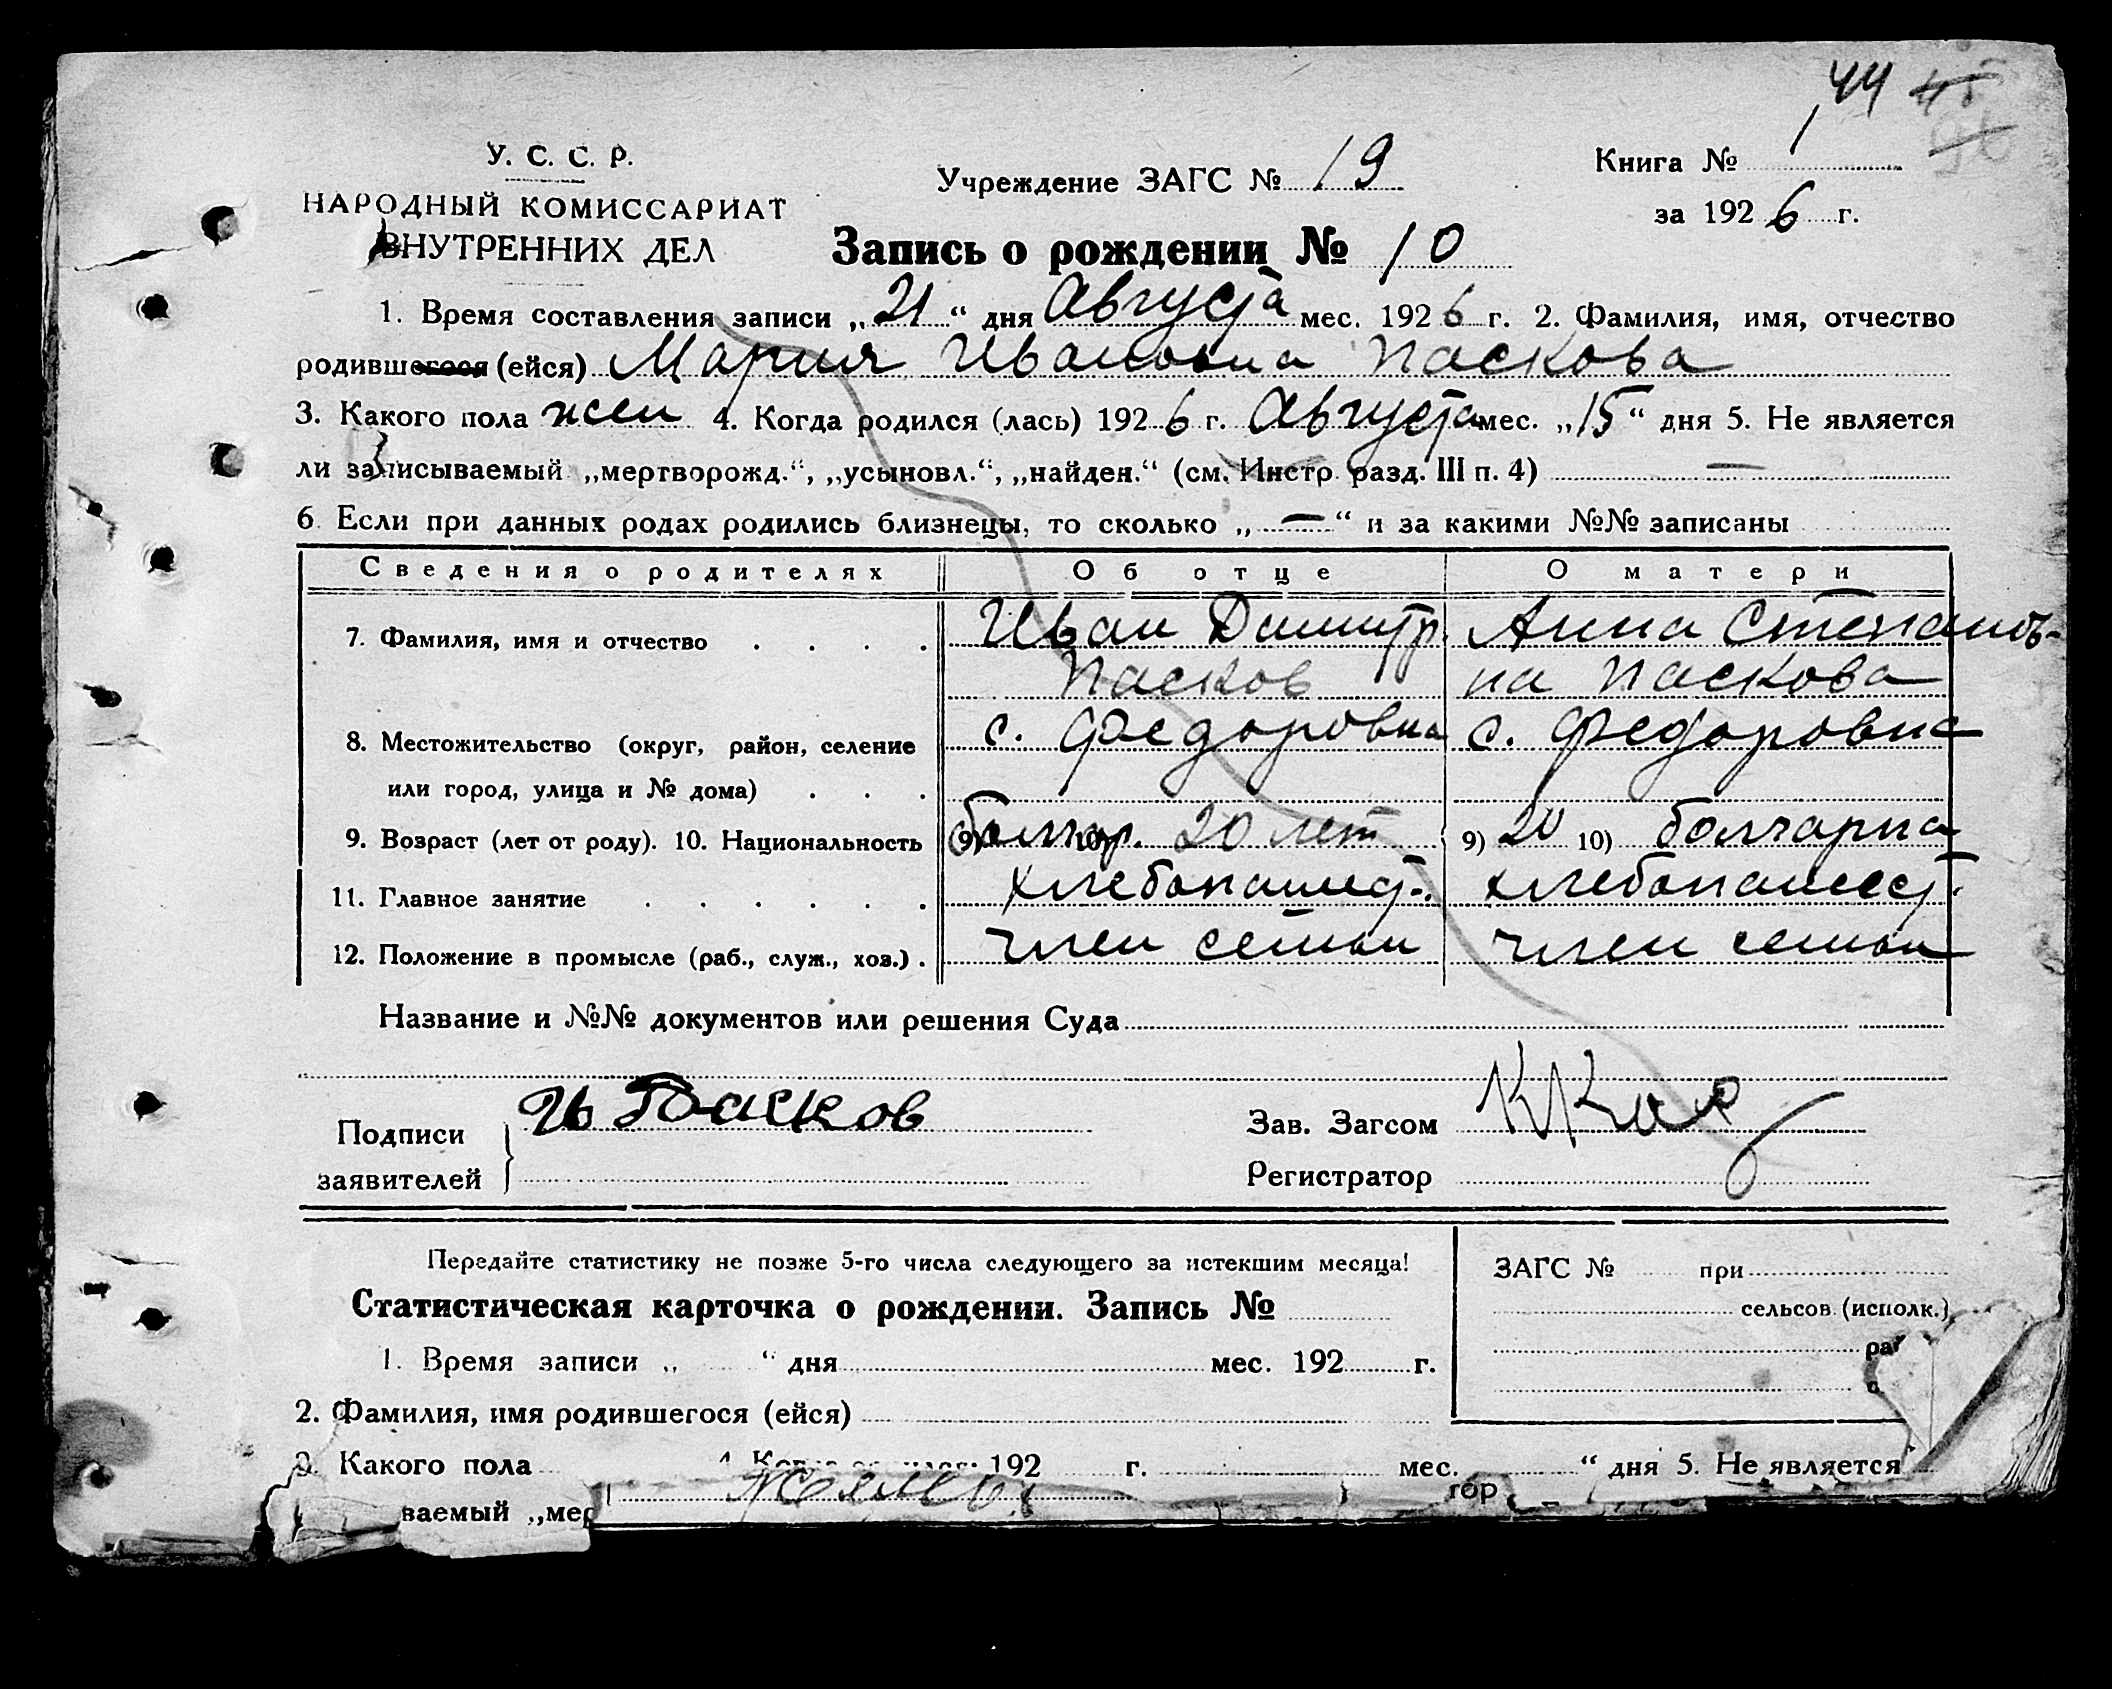 44 45
96
У. С. С. Р.
НАРОДНЫЙ КОМИССАРИАТ
ВНУТРЕННИХ ДЕЛ
Учреждение ЗАГС № 19
Книга № 1
за 1926 г.
Запись о рождении № 10
1. Время составления записи „21“ дня Августа мес. 1926 г. 2. Фамилия, имя, отчество
родившегося (ейся) Мария Ивановна Паскова
3. Какого пола жен 4. Когда родился (лась) 1926 г. Августа мес. „15“ дня 5. Не является
ли записываемый „мертворожд.“, „усыновл.“, „найден.“ (см. Инстр. разд. III п. 4) —
6. Если при данных родах родились близнецы, то сколько „—“ и за какими №№ записаны
Сведения о родителях Об отце О матери
7. Фамилия, имя и отчество . . . . Иван Димитр. Анна Степанов-
Пасков на Паскова
8. Местожительство (округ, район, селение с. Федоровка с. Федоровка
или город, улица и № дома) . . .
9. Возраст (лет от роду). 10. Национальность 9) 10) болгар. 20 лет 9) 20 10) болгарка
11. Главное занятие . . . . . . хлебопашест. хлебопашест.
12. Положение в промысле (раб., служ., хоз.) . член семьи член семьи
Название и №№ документов или решения Суда
Подписи
заявителей
Ив Пасков
Зав. Загсом
Регистратор
Передайте статистику не позже 5-го числа следующего за истекшим месяца!
Статистическая карточка о рождении. Запись №
ЗАГС № при
сельсов. (исполк.)
ра
1. Время записи „ “ дня мес. 192 г.
2. Фамилия, имя родившегося (ейся)
3. Какого пола 4. 192 г. мес. “ дня 5. Не является
ваемый „мер
тор